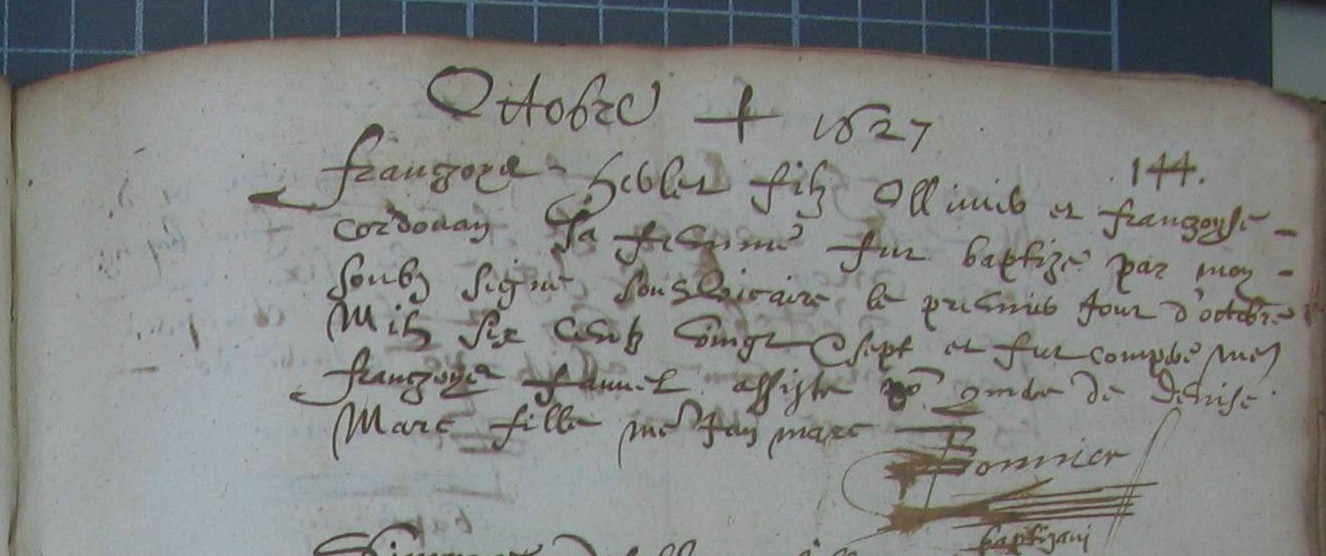 Octobre + 1627
144.
françoys heblet filz Ollivier et françoyse
cordouan sa femme fut baptizé par moy
soubz signé soubz vicaire le premier Jour d'octobre
Mil six centz vingt sept et fut compere
françoys assisté de Denise
Marc fille Jan marc
Bonnier
baptizavi